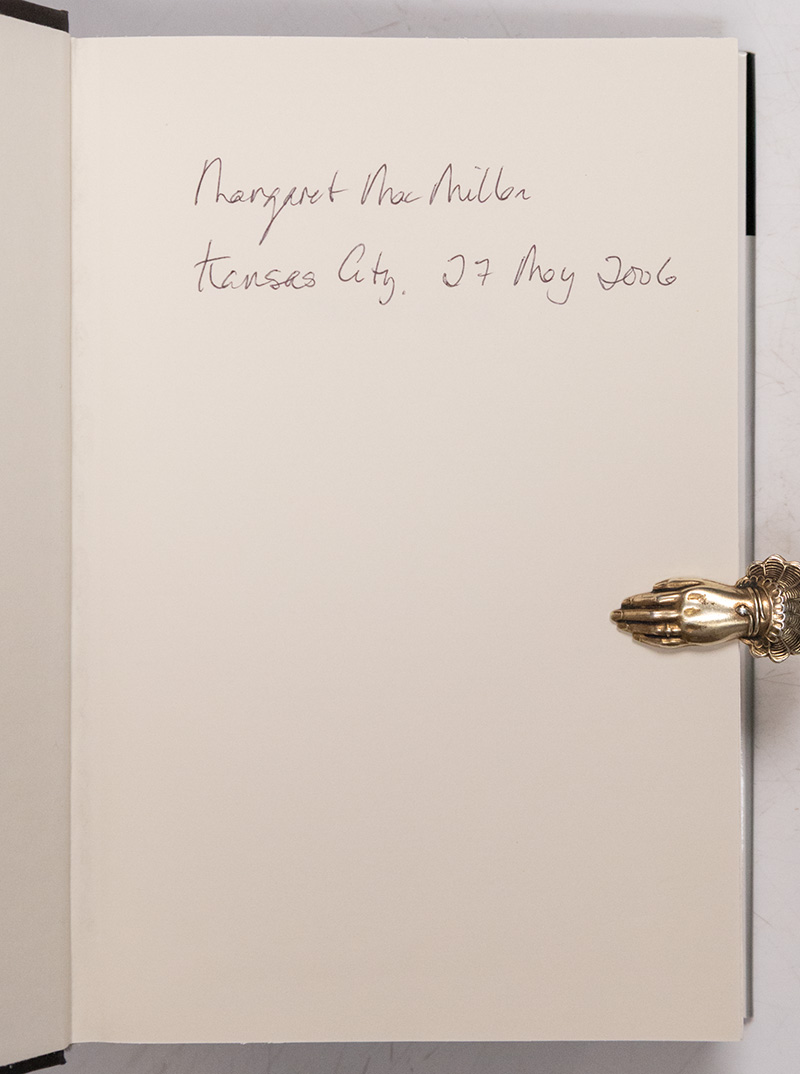 Margaret MacMillan
Kansas City. 27 May 2006